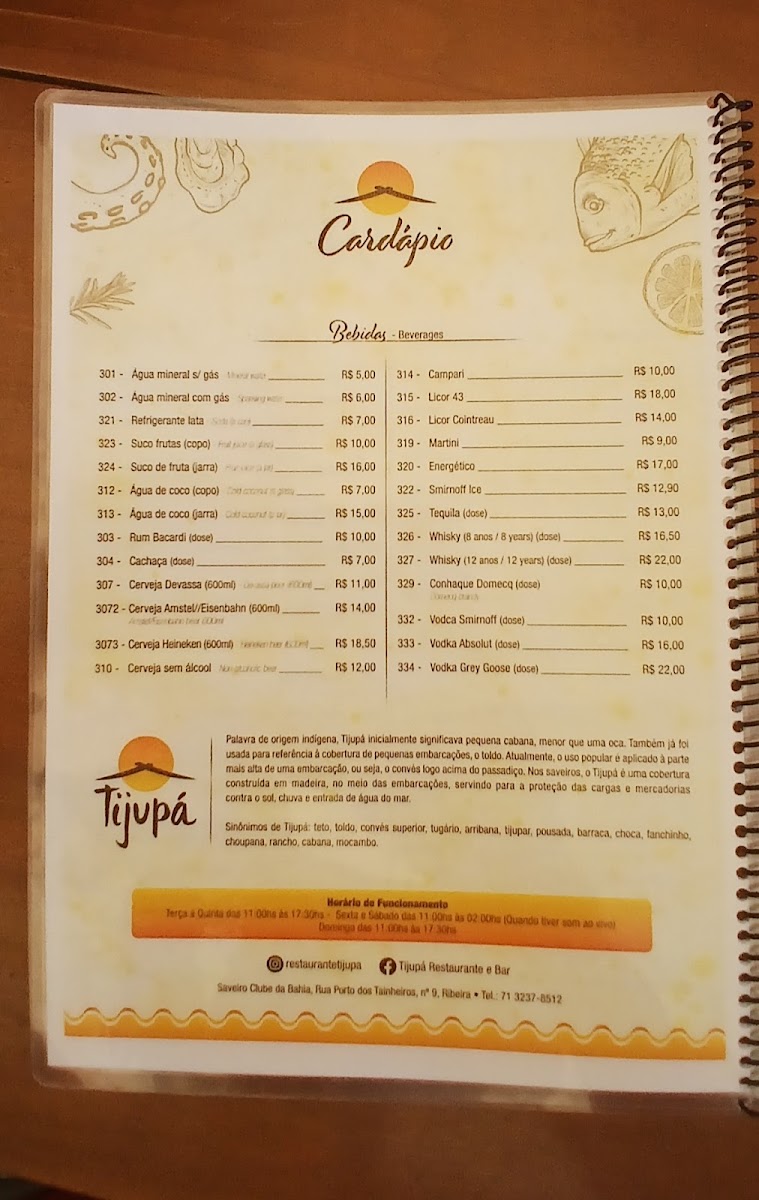 Cardápio
Bebidas - Beverages
301 - Água mineral s/ gás Mineral water R$ 5,00
302 - Água mineral com gás Sparkling water R$ 6,00
321 - Refrigerante lata R$ 7,00
323 - Suco frutas (copo) Fruit juice (a glass) R$ 10,00
324 - Suco de fruta (jarra) R$ 16,00
312 - Água de coco (copo) R$ 7,00
313 - Água de coco (jarra) R$ 15,00
303 - Rum Bacardi (dose) R$ 10,00
304 - Cachaça (dose) R$ 7,00
307 - Cerveja Devassa (600ml) Devassa beer (600ml) R$ 11,00
3072 - Cerveja Amstel//Eisenbahn (600ml) R$ 14,00
Amstel/Eisenbahn beer 600ml
3073 - Cerveja Heineken (600ml) Heineken beer (600ml) R$ 18,50
310 - Cerveja sem álcool Non-alcoholic beer R$ 12,00
314 - Campari R$ 10,00
315 - Licor 43 R$ 18,00
316 - Licor Cointreau R$ 14,00
319 - Martini R$ 9,00
320 - Energético R$ 17,00
322 - Smirnoff Ice R$ 12,90
325 - Tequila (dose) R$ 13,00
326 - Whisky (8 anos / 8 years) (dose) R$ 16,50
327 - Whisky (12 anos / 12 years) (dose) R$ 22,00
329 - Conhaque Domecq (dose) R$ 10,00
Domecq brandy
332 - Vodca Smirnoff (dose) R$ 10,00
333 - Vodka Absolut (dose) R$ 16,00
334 - Vodka Grey Goose (dose) R$ 22,00
Tijupá
Palavra de origem indígena, Tijupá inicialmente significava pequena cabana, menor que uma oca. Também já foi
usada para referência à cobertura de pequenas embarcações, o toldo. Atualmente, o uso popular é aplicado à parte
mais alta de uma embarcação, ou seja, o convés logo acima do passadiço. Nos saveiros, o Tijupá é uma cobertura
construída em madeira, no meio das embarcações, servindo para a proteção das cargas e mercadorias
contra o sol, chuva e entrada de água do mar.
Sinônimos de Tijupá: teto, toldo, convés superior, tugúrio, arribana, tijupar, pousada, barraca, choca, fanchinho,
choupana, rancho, cabana, mocambo.
Horário de Funcionamento
Terça à Quinta das 11:00hs às 17:30hs - Sexta e Sábado das 11:00hs às 02:00hs (Quando tiver som ao vivo)
Domingo das 11:00hs às 17:30hs
restaurantetijupa Tijupá Restaurante e Bar
Saveiro Clube da Bahia, Rua Porto dos Tainheiros, nº 9, Ribeira • Tel.: 71 3237-8512